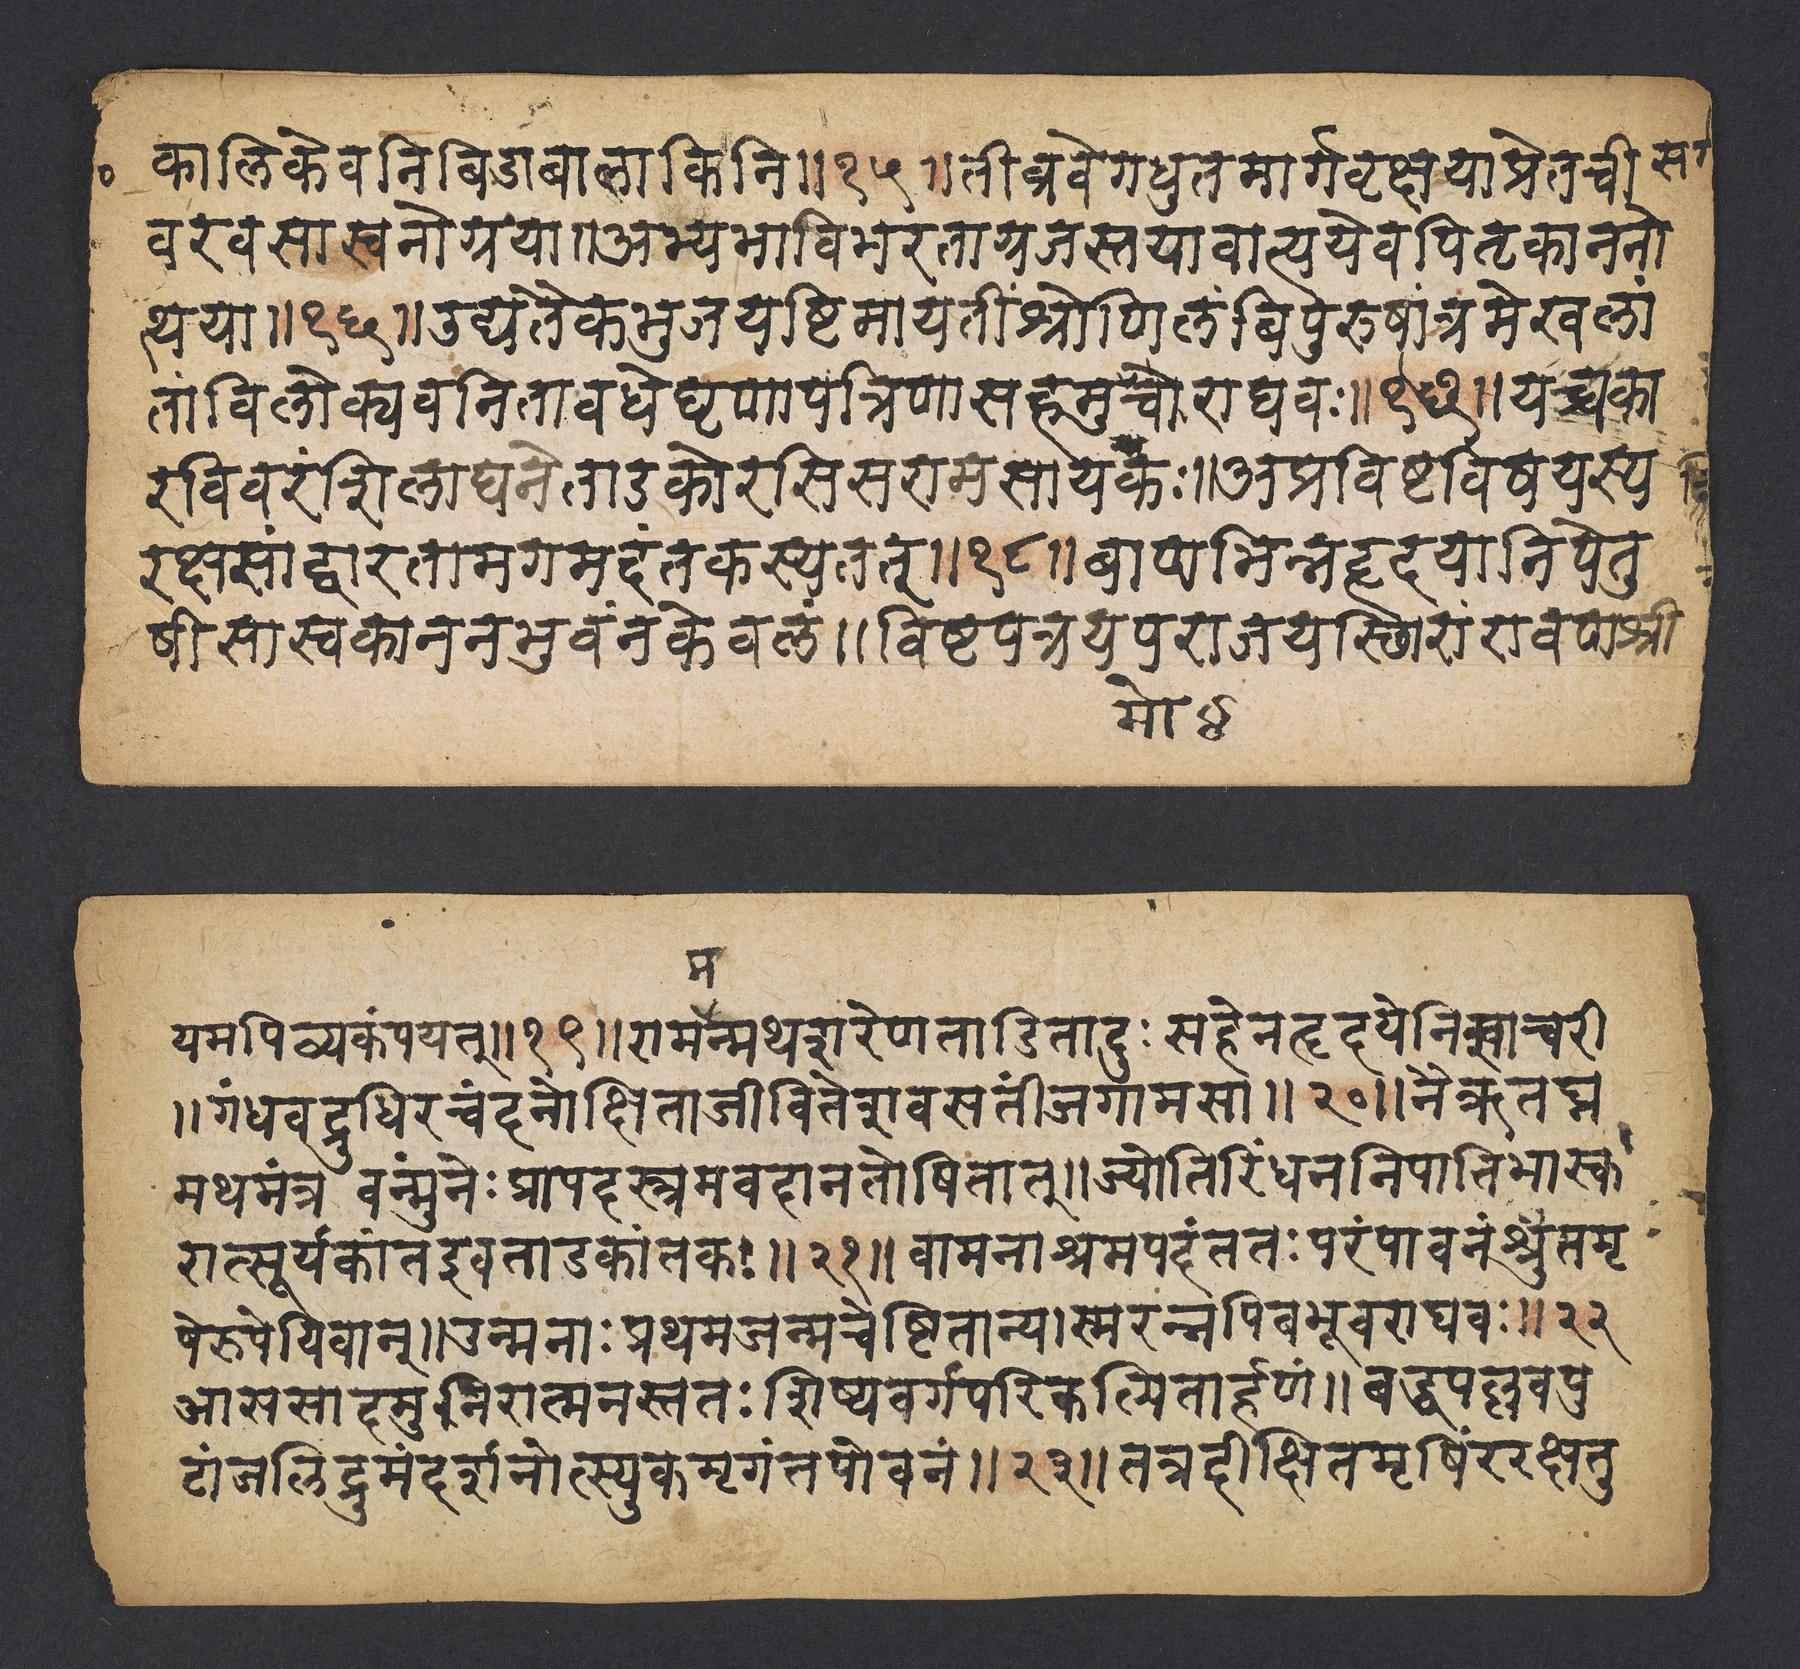 कालिकेवनिबिडाबालाकिनि॥१५॥तीव्रवेगधुतमार्गवृक्षयाप्रेतची
वरवसास्वनोग्रया॥अभ्यभाविभरताग्रजस्तयावात्ययेवपितृकाननो
त्थया॥१६॥उद्यतैकभुजयष्टिमायतींश्रोणिलंबिपुरुषांत्रमेखलां
तांविलोक्यवनितावधेघृणापत्रिणासहमुचोराघवः॥१७॥यच्चका
रविवरंशिलाघनेताडकोरसिसरामसायकः॥अप्रविष्टविषयस्य
रक्षसांद्वारतामगमदंतकस्यतत्॥१८॥बाणभिन्नहृदयानिपेतु
षीसास्वकाननभुवंनकेवलं॥विष्टपत्रयपराजयस्छिरांरावणश्री
मो ४
म
यमपिव्यकंपयत्॥१९॥रामन्मथशरेणताडितादुःसहेनहृदयेनिशाचरी
॥गंधवद्रुधिरचंदनोक्षिताजीवितेशवसतींजगामसा॥२०॥नैऋतघ्न
मथमंत्र वन्मुनेःप्रापदस्त्रमवदानतोषितात्॥ज्योतिरिंधननिपातिभास्क
रात्सूर्यकांतइवताडकांतकः॥२१॥वामनाश्रमपदंततःपरंपावनंश्रुतमृ
षेरुपेयिवान्॥उन्मनाःप्रथमजन्मचेष्टितान्यास्मरन्नपिवभूवराघवः॥२२
आससादमुनिरात्मनस्ततःशिष्यवर्गपरिकल्पितार्हणं॥बद्धपल्लवपु
टांजलिद्रुमंदर्शनोत्स्युकमृगंतपोवनं॥२३॥तत्रदीक्षितमृषिंररक्षतु